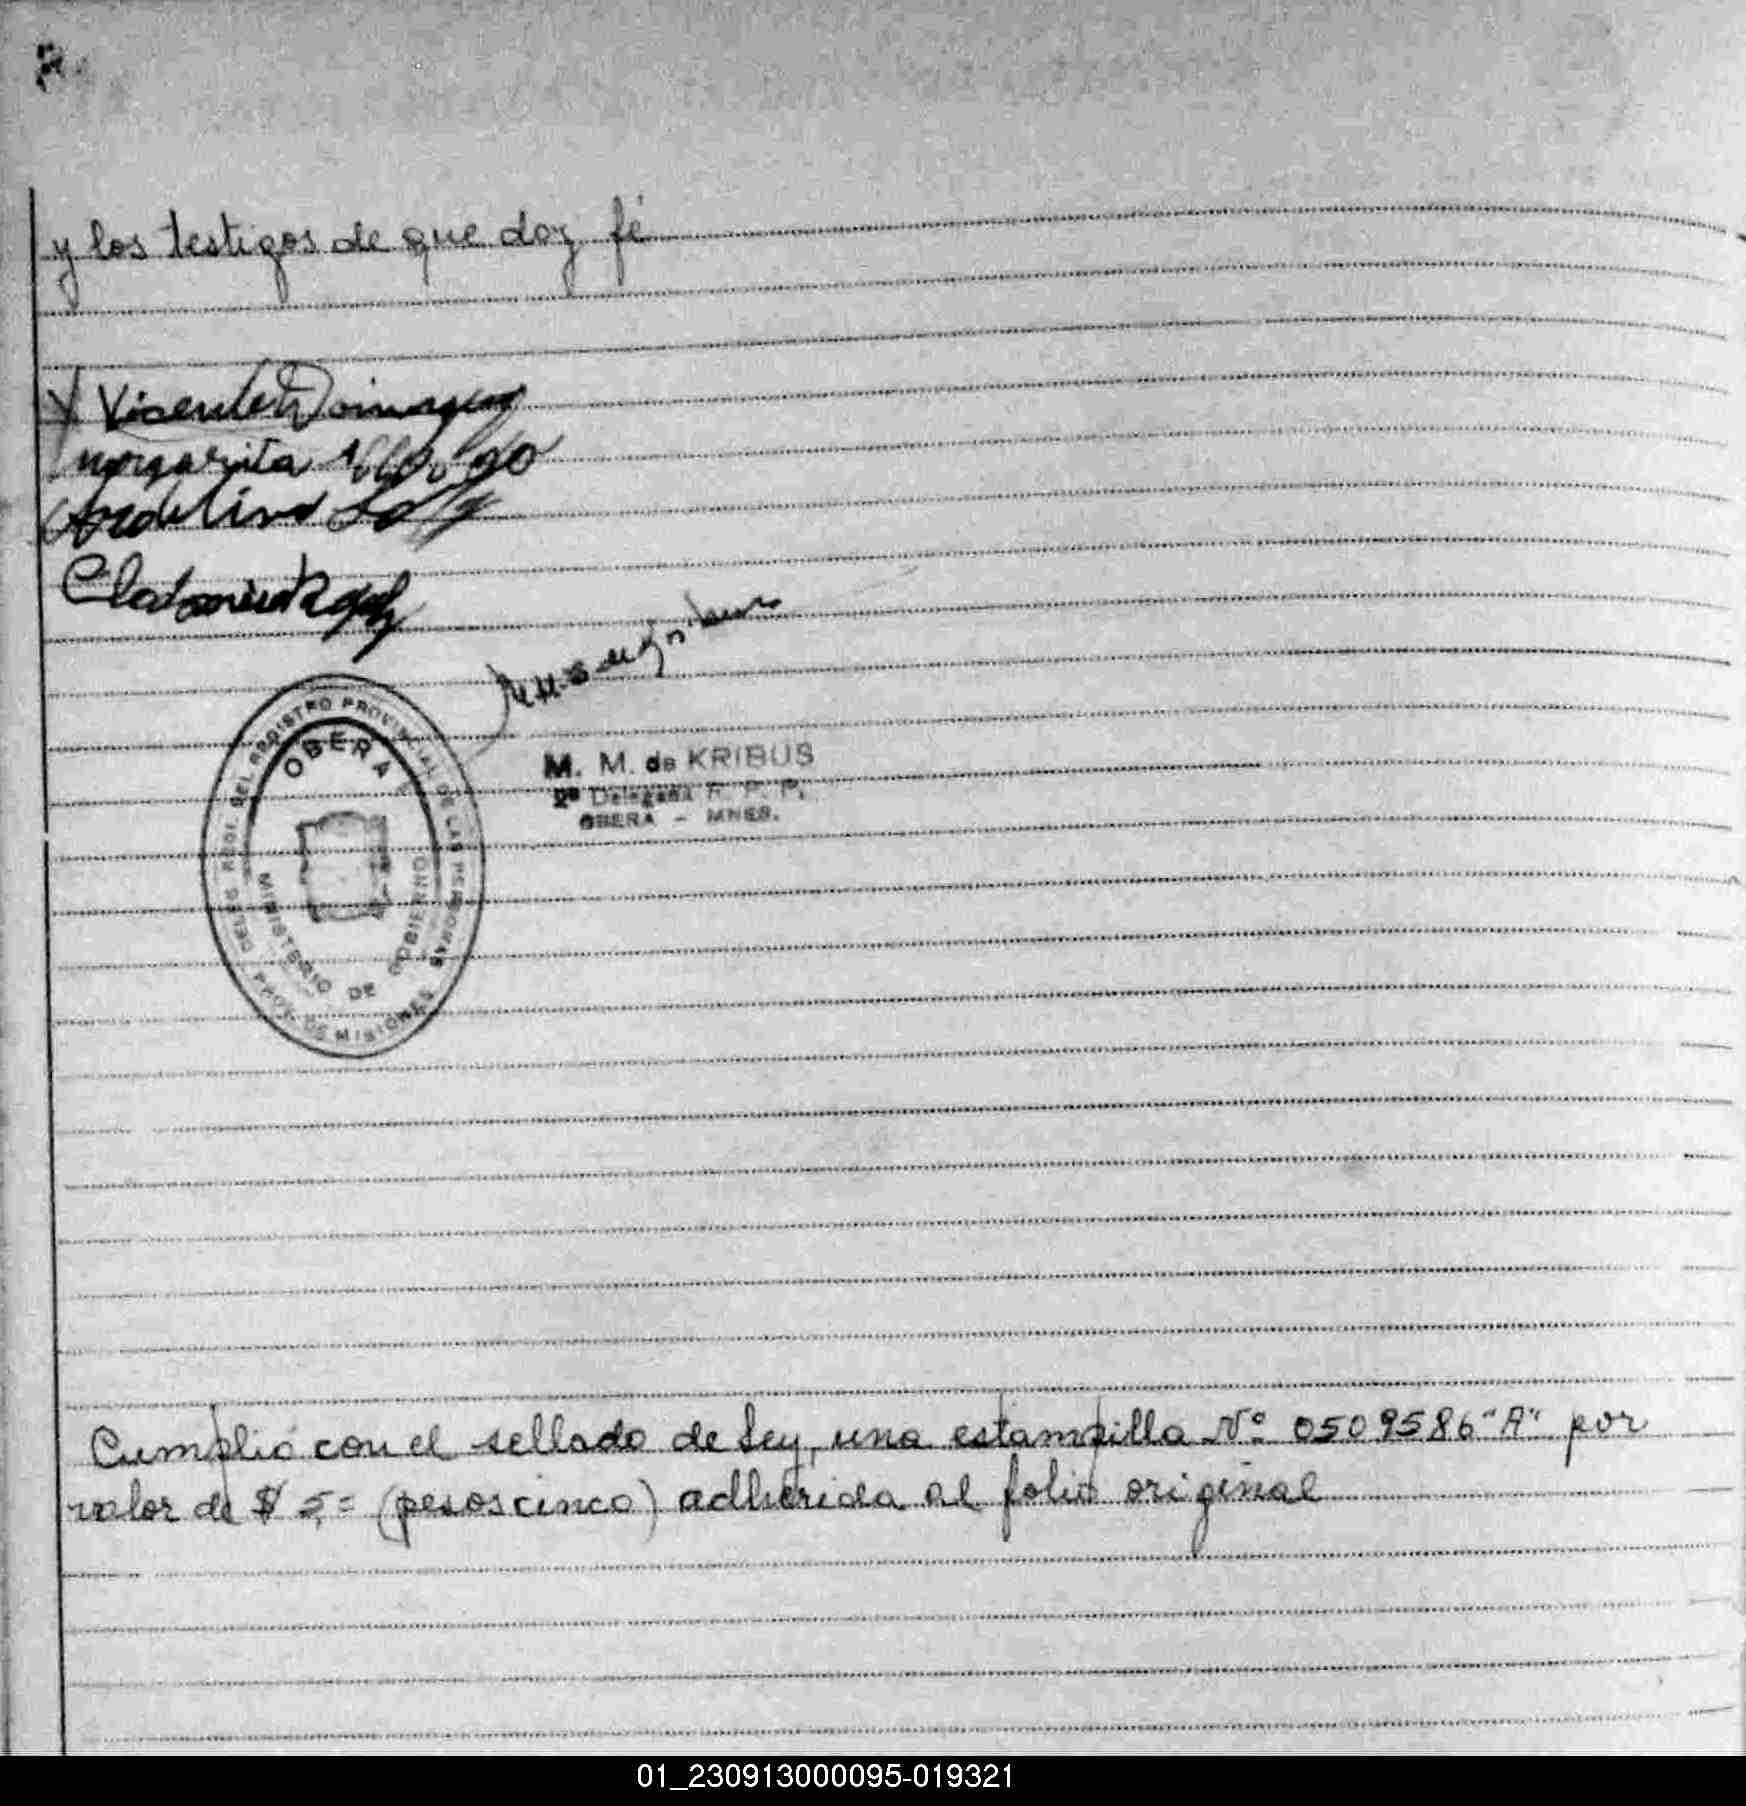 y los testigos de que doy fé
Vicente Dominguez
margarita
M. M. de KRIBUS
2ª Delegada R. P. P.
OBERA - MNES.
DELEG. DEL REGISTRO PROVINCIAL DE LAS PERSONAS
OBERA
MINISTERIO DE GOBIERNO
PROV. DE MISIONES
Cumplió con el sellado de Ley, una estampilla Nº 0509586 "A" por
valor de $ 5,= (pesos cinco) adherida al folio original
01_230913000095-019321